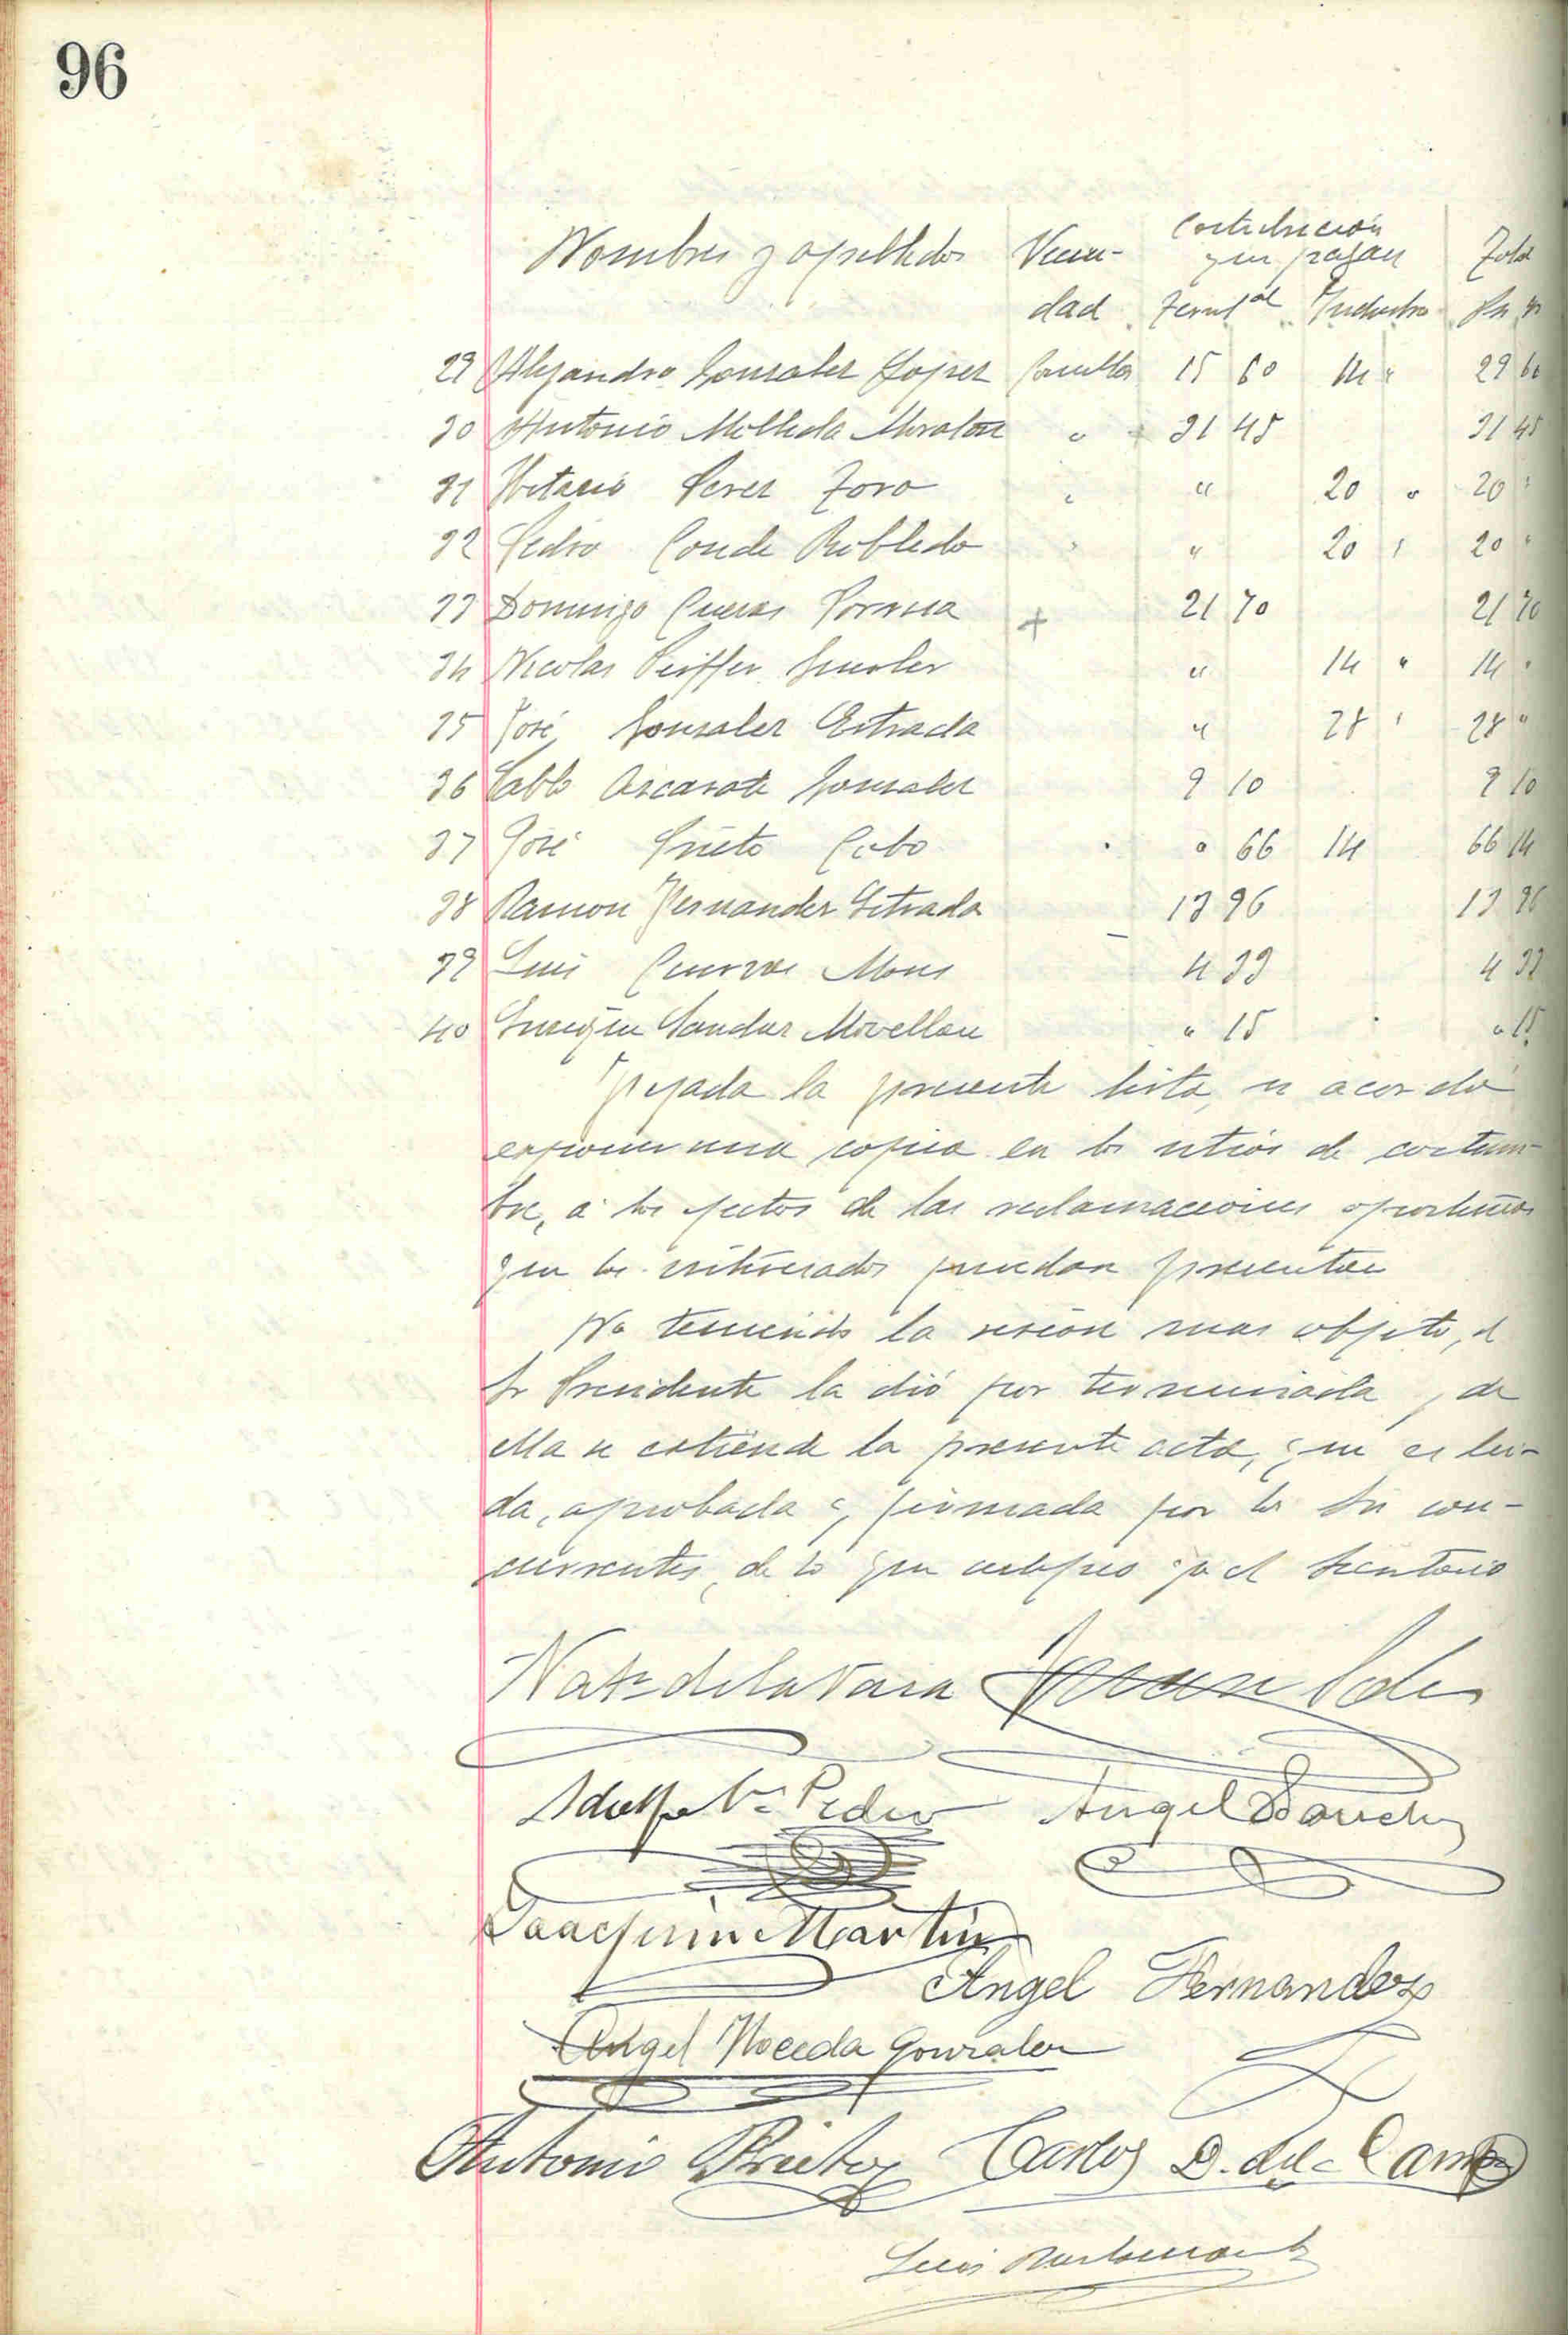 96
Contribución
Nombres y apellidos Vecin- que pagan Total
dad Territ al Industr
29 Alejandro Gonzalez Lopez Comillas 15 60 14 " 29 60
30 Antonio Molleda " 31 45 31 45
31 Perez Toro " " 20 " 20 "
32 Pedro Conde Robledo " " 20 " 20 "
33 Domingo Cuevas + 21 70 21 70
34 Nicolas Peiffer " 14 " 14 "
35 José Gonzalez Estrada " 28 " 28 "
36 Pablo Azcarate Gonzalez 9 10 9 10
37 José Prieto Cobo " 66 14 66 14
38 Ramon Fernandez Estrada 13 96 13 96
39 Luis Mons 4 33 4 33
40 Enrique Sanchez Movellan " 15 " 15
Fijada la presente lista, se acordó
exponer una copia en los sitios de costum-
bre, á los efectos de las reclamaciones oportunas
que los interesados puedan presentar
No teniendo la sesión mas objeto, el
Sr Presidente la dió por terminada y de
ella se extiende la presente acta, que es lei-
da, aprobada y firmada por los Srs con-
currentes, de lo que certifico yo el Secretario
de la Vara Juan
Adolfo Pedro Angel Sanchez
Joaquin Martin
Angel Fernandez
Angel Noceda Gonzalez
Antonio Prieto Carlos D. del Campo
Luis